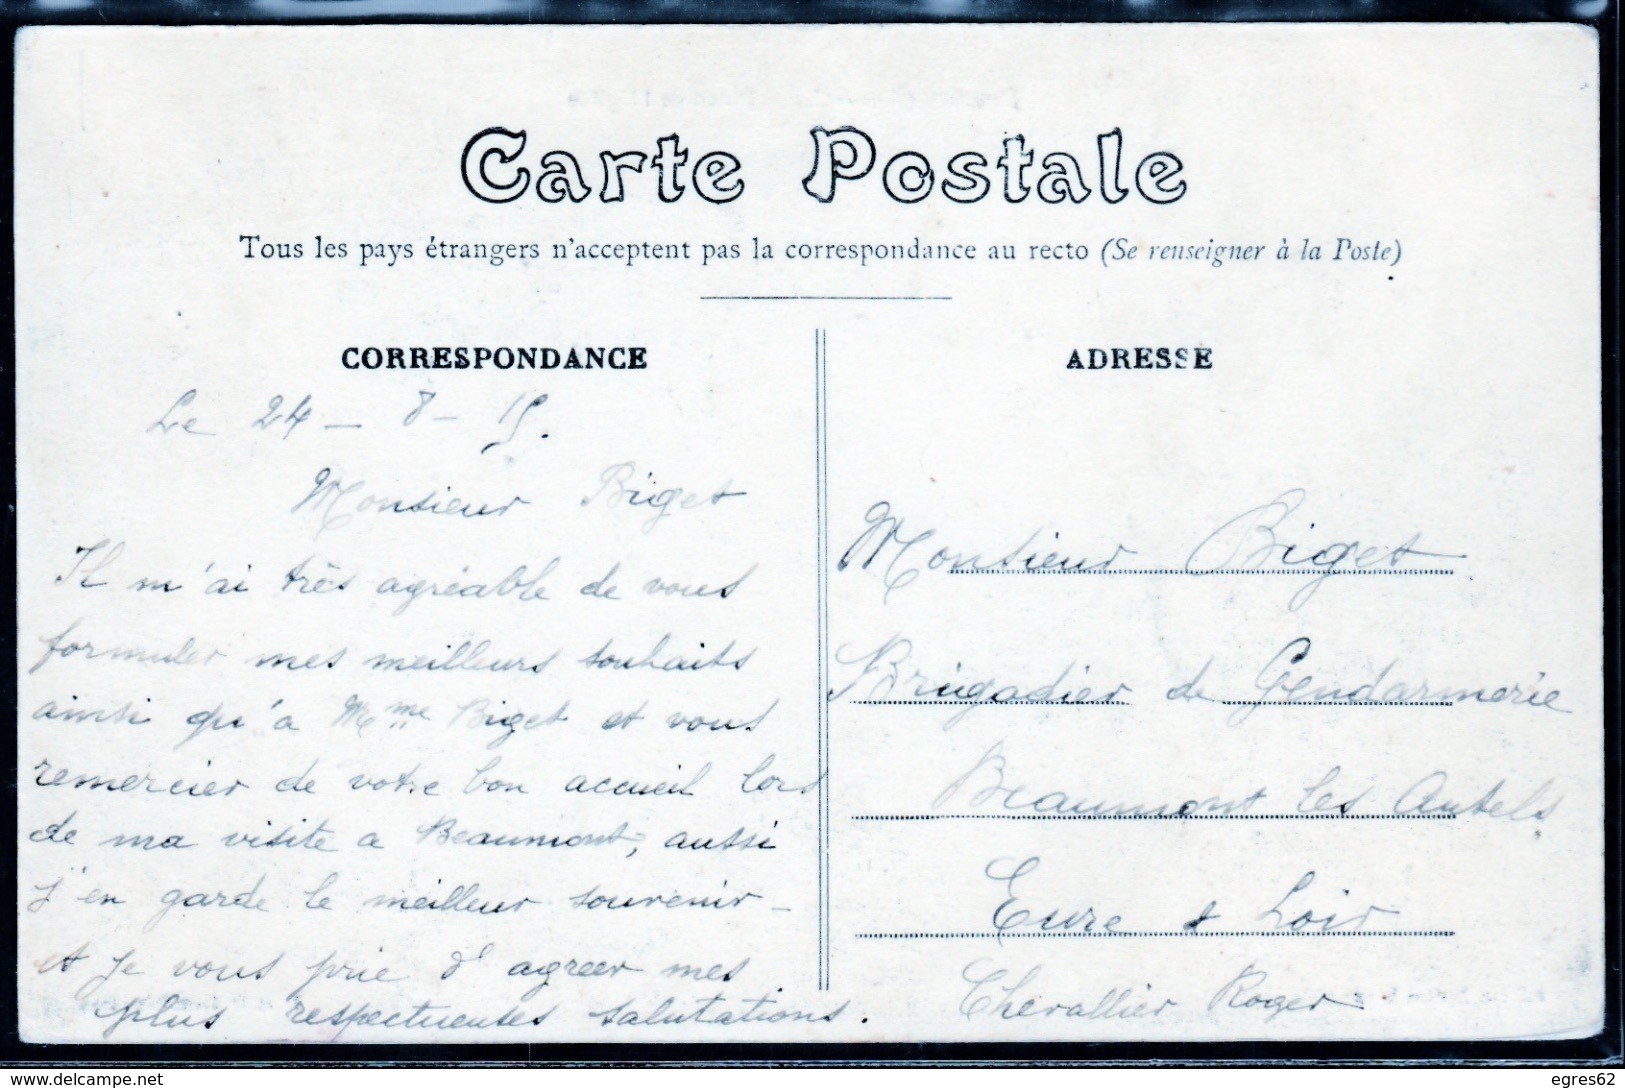 Carte Postale
Tous les pays étrangers n'acceptent pas la correspondance au recto (Se renseigner à la Poste)
CORRESPONDANCE
Le 24 – 8 – 15.
Monsieur Biget
Il m'ai très agréable de vous
formuler mes meilleurs souhaits
ainsi qu'a Mme Biget et vous
remercier de votre bon accueil lors
de ma visite a Beaumont, aussi
j'en garde le meilleur souvenir –
et je vous prie d'agreer mes
plus respectueuses salutations.
ADRESSE
Monsieur Biget
Brigadier de Gendarmerie
Beaumont les Autels
Eure & Loir
Chevallier Roger
www.delcampe.net
egres62